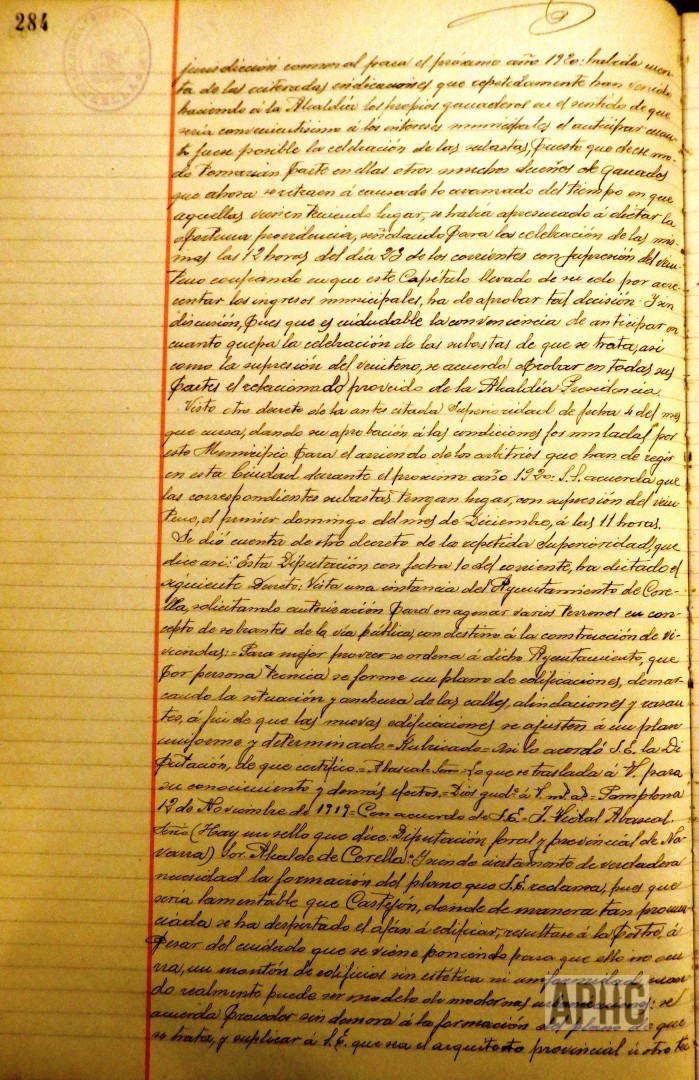 284
jurisdicción comunal para el próximo año 1920: habida cuen-
ta de las reiteradas indicaciones que repetidamente han venido
haciendo á la Alcaldía los propios ganaderos en el sentido de que
sería convenientísimo á los intereses municipales el anticipar cuan-
to fuese posible la celebración de las subastas, puesto que de ese mo-
do tomarían parte en ellas otros muchos dueños de ganados
que ahora se retraen á causa de lo avanzado del tiempo en que
aquellas vienen teniendo lugar, se había apresurado á dictar la
oportuna providencia, señalando para la celebración de las mis-
mas las 12 horas del día 23 de los corrientes con supresión del vein-
teno confiando en que este Capítulo llevado de su celo por acre-
centar los ingresos municipales, ha de aprobar tal decisión. Y sin
discusión, pues que es indudable la conveniencia de anticipar en
cuanto quepa la celebración de las subastas de que se trata, así
como la supresión del veinteno, se acuerda aprobar en todas sus
partes el relacionado proveido de la Alcaldía Presidencia.
Visto otro decreto de la antes citada Superioridad de fecha 4 del mes
que cursa, dando su aprobación á las condiciones formuladas por
este Municipio para el arriendo de los arbitrios que han de regir
en esta Ciudad durante el próximo año 1920: S.S. acuerda que
las correspondientes subastas tengan lugar, con supresión del vein-
teno, el primer domingo del mes de Diciembre, á las 11 horas.
Se dió cuenta de otro decreto de la repetida Superioridad, que
dice así: "Esta Diputación con fecha 10 del corriente, ha dictado el
siguiente Decreto: Vista una instancia del Ayuntamiento de Core-
lla, solicitando autorización para enagenar varios terrenos en con-
cepto de sobrantes de la vía pública, con destino á la construcción de vi-
viendas: = Para mejor proveer se ordena á dicho Ayuntamiento, que
por persona técnica se forme un plano de edificaciones, demar-
cando la situación y anchura de las calles, alineaciones y rasan-
tes, á fin de que las nuevas edificaciones se ajusten á un plan
uniforme y determinado = Rubricado = Así lo acordó S.E. la Di-
putación, de que certifico. = Abascal Srio = Lo que se traslada á V. para
su conocimiento y demás efectos. = Dios gude. á V. m. a. = Pamplona
12 de Noviembre de 1919 = Con acuerdo de S.E. = Vistal Abascal
Srio (Hay un sello que dice: Diputación foral y provincial de Na-
varra) Sor. Alcalde de Corella." Y siendo ciertamente de verdadera
necesidad la formación del plano que S.E. reclama, pues que
sería lamentable que Castejón, donde de manera tan pronun-
ciada se ha despertado el afán á edificar, resultase á la postre, á
pesar del cuidado que se viene poniendo para que ello no ocu-
rra, un montón de edificios sin estética ni uniformidad cuan-
do realmente puede ser modelo de modernas se
acuerda proceder sin demora á la formación del plano de que
se trata, y suplicar á S.E. que sea el arquitecto provincial ú otro téc-
APHC